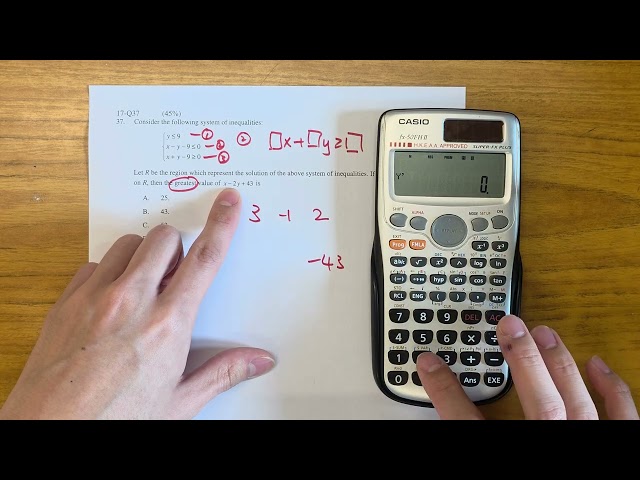 17-Q37 (45%)
37. Consider the following system of inequalities:
y ≤ 9 —①
x − y − 9 ≤ 0 —②
x + y − 9 ≥ 0 —③
② □x+□y≥□
Let R be the region which represent the solution of the above system of inequalities. If
on R, then the greatest value of x − 2y + 43 is
A. 25.
B. 43.
C.
3 -1 2
-43
CASIO
fx-50FH II
H.K.E.A.A. APPROVED SUPER-FX PLUS
Y"
0.
SHIFT ALPHA MODE SET UP ON
EXIT
Prog FMLA x⁻¹ x³
ab/c √ x² ^ log ln
(-) hyp sin cos tan
STO
RCL ENG ( ) , M+
7 8 9 DEL AC
4 5 6 × ÷
1 3 + −
0 Ans EXE